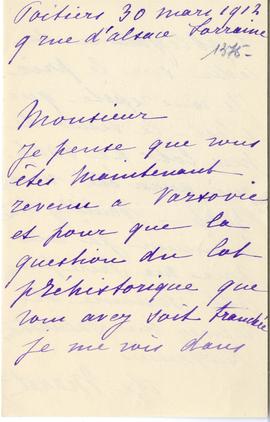 Poitiers 30 mars 1912
9 rue d'alsace Lorraine
1375-
Monsieur
Je pense que vous
êtes maintenant
revenu a Varsovie
et pour que la
question du Lot
préhistorique que
vous avez soit tranchée
je me vois dans